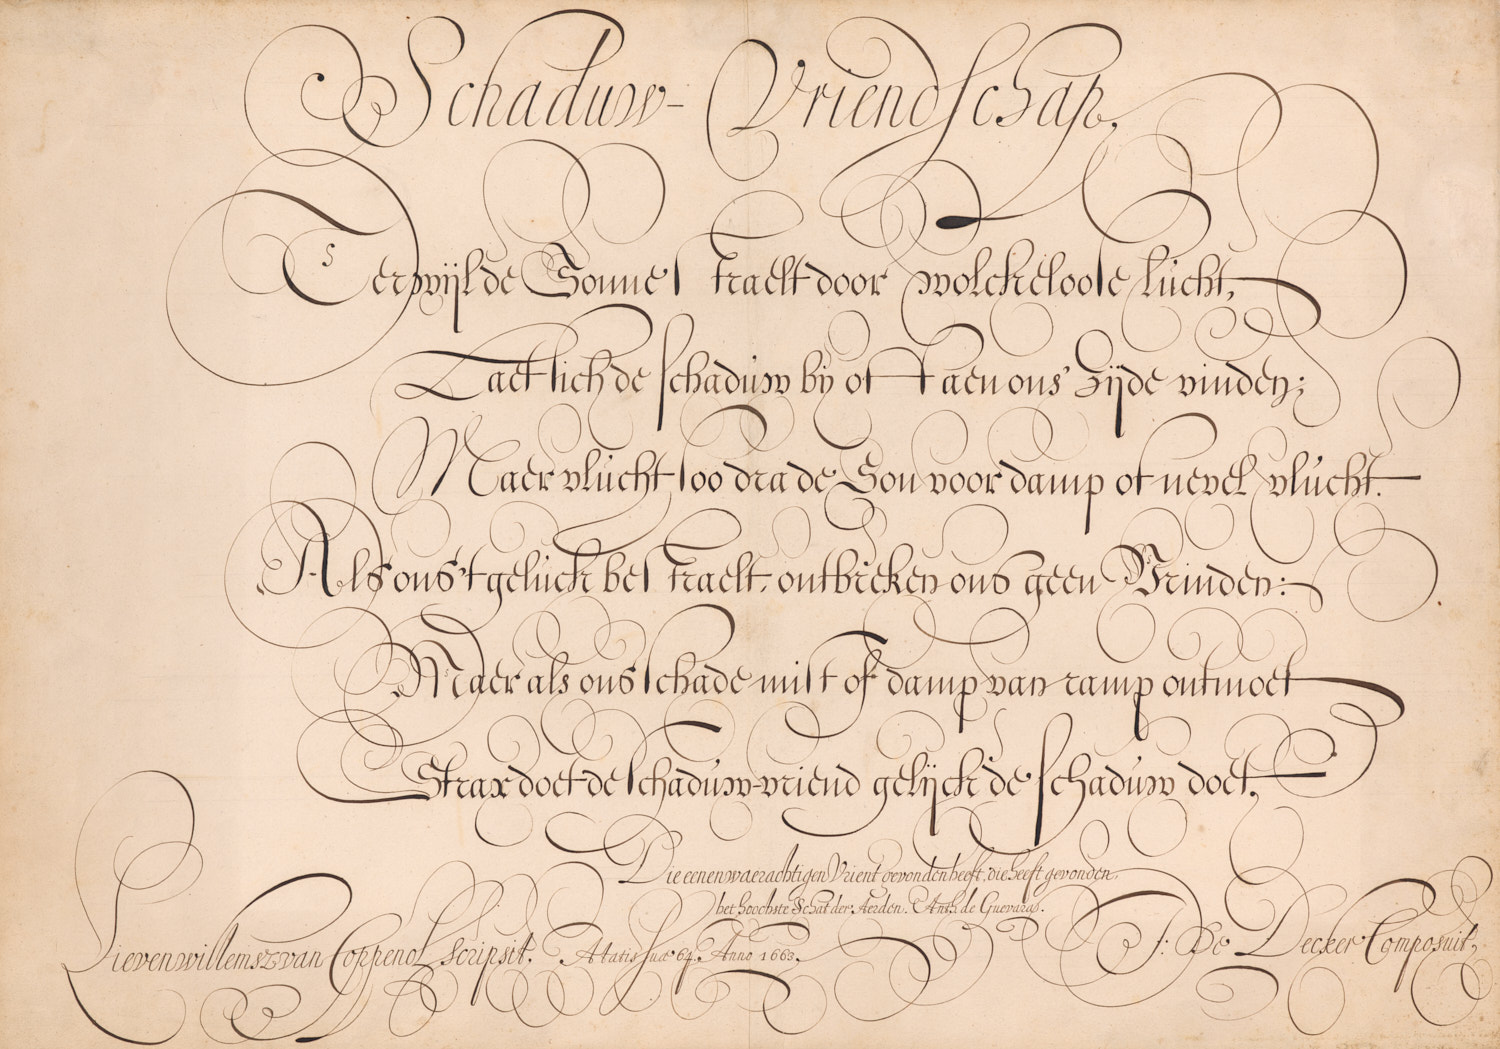 Schaduw-Vriendschap,
Terwijl de Sonne straelt door wolckeloose lucht,
Laet sich de schaduw by of staen ons zijde vinden;
Maer vlucht soo dra de Son voor damp of nevel vlucht.
Als ons 't geluck bestraelt, ontbreken ons geen Vrinden:
Maer als ons schade mist of damp van ramp ontmoet
Strax doet de schaduw-vriend gelijck de schaduw doet.
Die eenen waerachtigen Vrient gevonden heeft, die heeft gevonden
het hoochste Schat der Aerden. Anth. de Guevara.
Lieven willemsz van Coppenol scripsit. Ætatis suæ 64. Anno 1663.
J: De Decker Composuit,